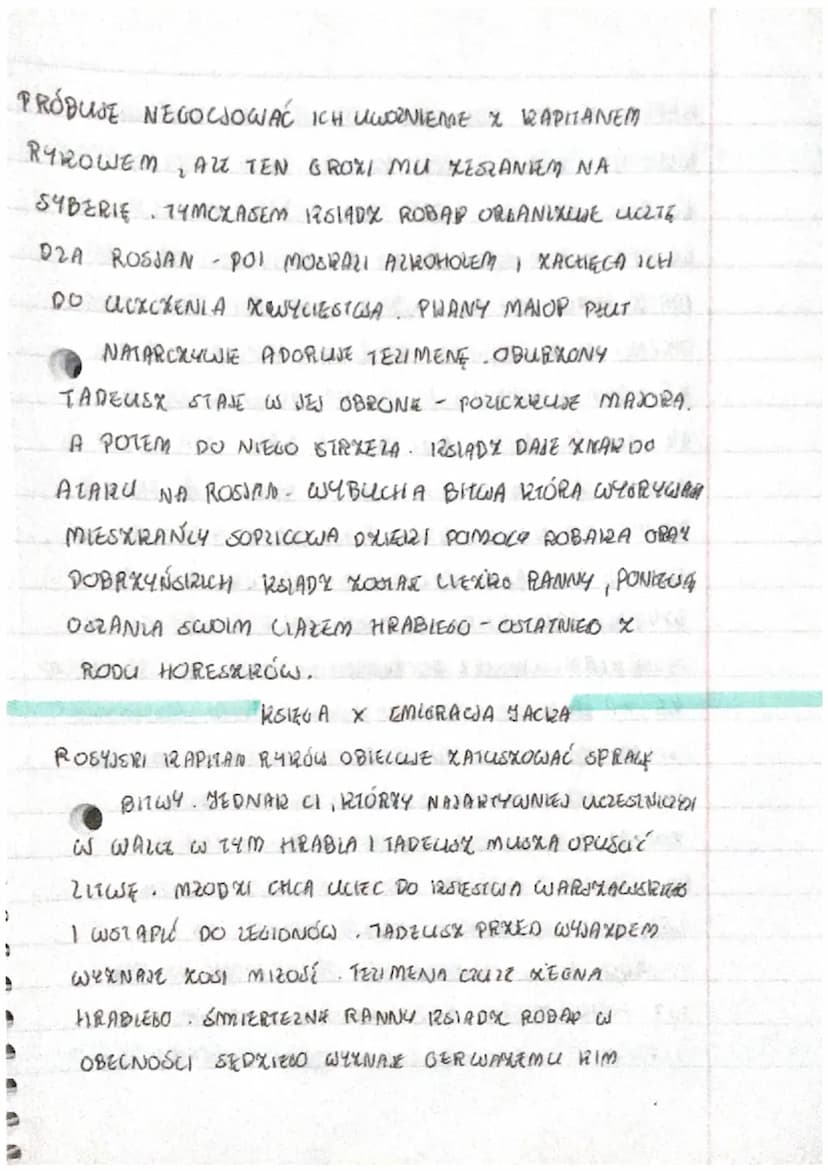 PRÓBUJE NEGOCJOWAĆ ICH UWOLNIENIE Z KAPITANEM
RYKOWEM, ALE TEN GROZI MU ZESŁANIEM NA
SYBERIĘ. TYMCZASEM KSIĄDZ ROBAK ORGANIZUJE UCZTĘ
DLA ROSJAN - POI MOSKALI ALKOHOLEM I ZACHĘCA ICH
DO UCZCZENIA ZWYCIĘSTWA. PIJANY MAJOR PŁUT
NATARCZYWIE ADORUJE TELIMENĘ. OBURZONY
TADEUSZ STAJE W JEJ OBRONIE - POLICZKUJE MAJORA.
A POTEM DO NIEGO STRZELA. KSIĄDZ DAJE ZNAK DO
ATAKU NA ROSJAN - WYBUCHA BITWA KTÓRA WYGRYWAJĄ
MIESZKAŃCY SOPLICOWA DZIĘKI POMOCY ROBAKA ORAZ
DOBRZYŃSKICH. KSIĄDZ ZOSTAJE CIĘŻKO RANNY, PONIEWAŻ
OSŁANIA SWOIM CIAŁEM HRABIEGO - OSTATNIEGO Z
RODU HORESZKÓW.
KSIĘGA X EMIGRACJA JACKA
ROSYJSKI KAPITAN RYKÓW OBIECUJE ZATUSZOWAĆ SPRAWĘ
BITWY. JEDNAK CI, KTÓRZY NAJAKTYWNIEJ UCZESTNICZYLI
W WALCE W TYM HRABIA I TADEUSZ MUSZĄ OPUŚCIĆ
LITWĘ. MŁODZI CHCĄ UCIEC DO KSIĘSTWA WARSZAWSKIEGO
I WSTĄPIĆ DO LEGIONÓW. TADEUSZ PRZED WYJAZDEM
WYZNAJE ZOSI MIŁOŚĆ. TELIMENA CZULE ŻEGNA
HRABIEGO. ŚMIERTELNIE RANNY KSIĄDZ ROBAK W
OBECNOŚCI SĘDZIEGO WYZNAJE GERWAZEMU KIM